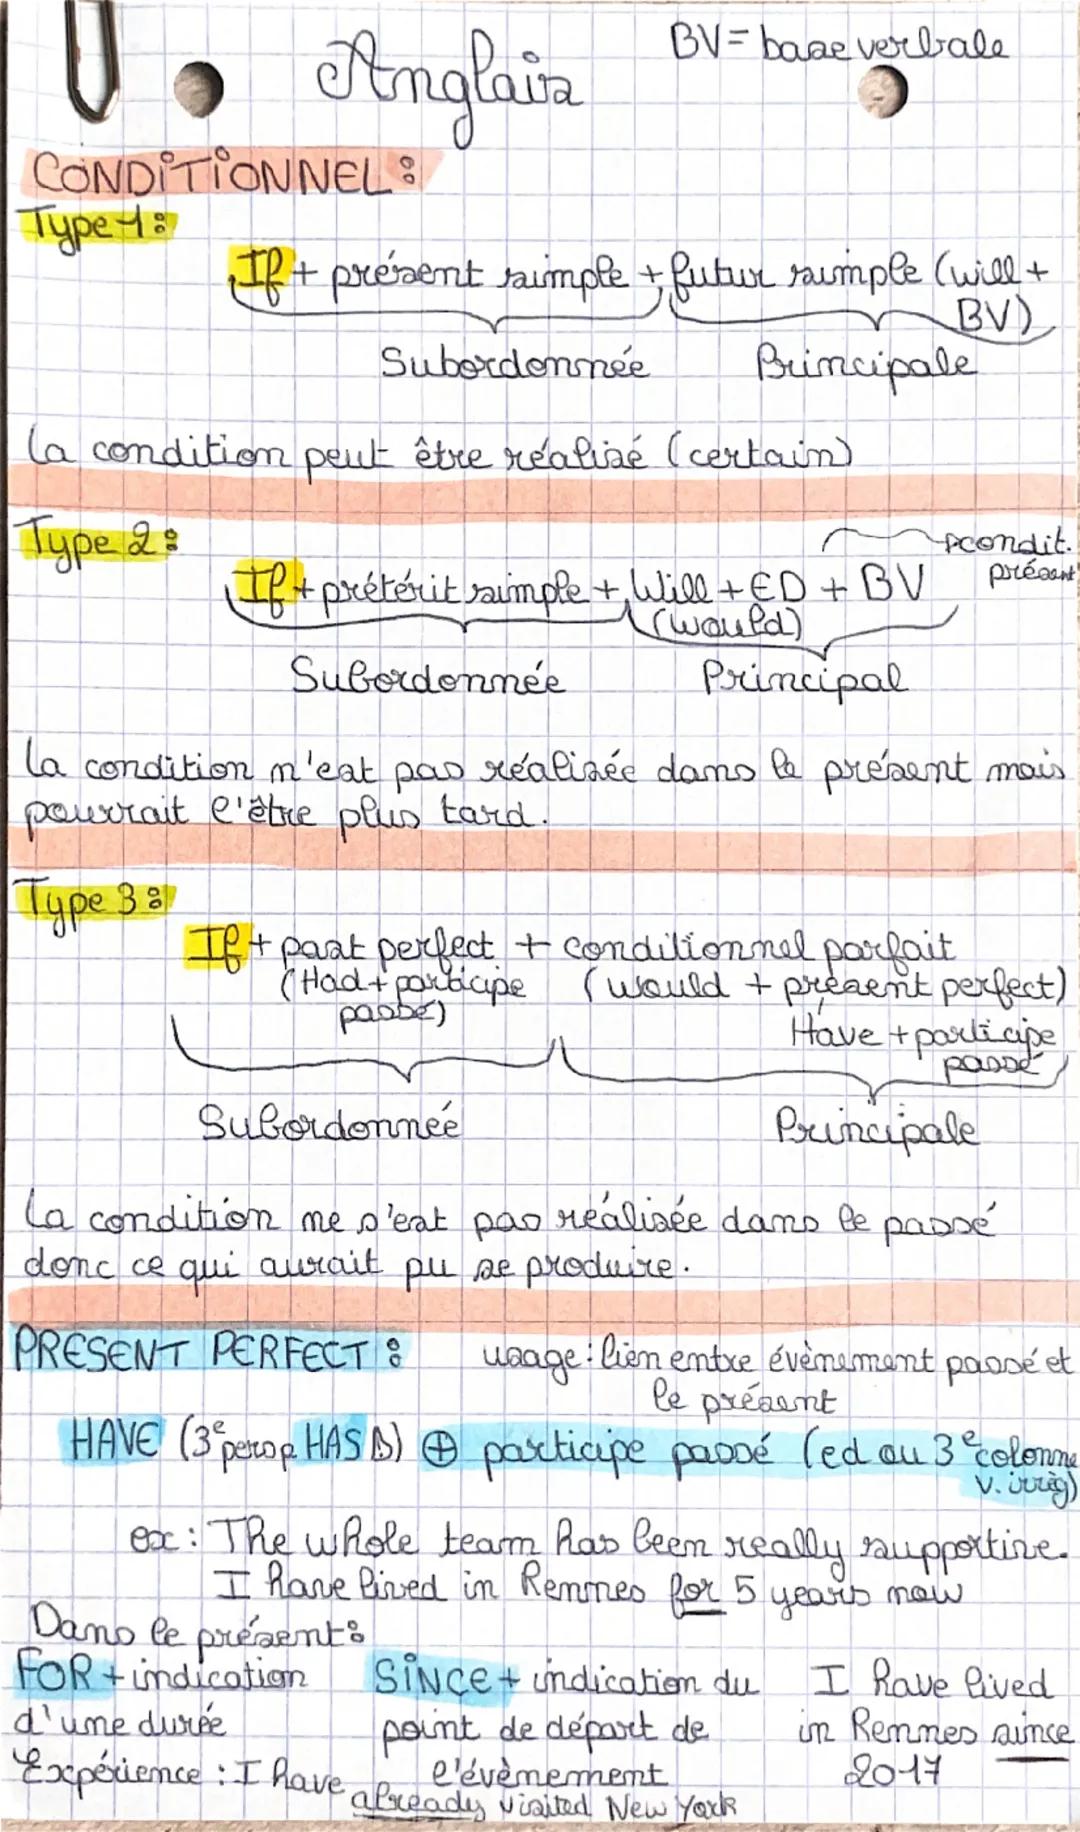 Anglais
BV = base verbale
CONDITIONNEL :
Type 1 :
If + présent simple + futur simple (will +
BV)
Subordonnée Principale
La condition peut être réalisé (certain)
Type 2 :
condit.
présent
If + prétérit simple + Will + ED + BV
(would)
Subordonnée Principal
La condition n'est pas réalisée dans le présent mais
pourrait l'être plus tard.
Type 3 :
If + past perfect + conditionnel parfait
(Had + participe (would + présent perfect)
passé) Have + participe
passé
Subordonnée Principale
La condition ne s'est pas réalisée dans le passé
donc ce qui aurait pu se produire.
PRESENT PERFECT : usage : lien entre évènement passé et
le présent
HAVE (3e pers HAS) + participe passé (ed ou 3e colonne
V. irrég)
ex : The whole team has been really supportive.
I have lived in Rennes for 5 years now
Dans le présent :
FOR + indication SINCE + indication du I have lived
d'une durée point de départ de in Rennes since
l'évènement 2017
Expérience : I have already visited New York